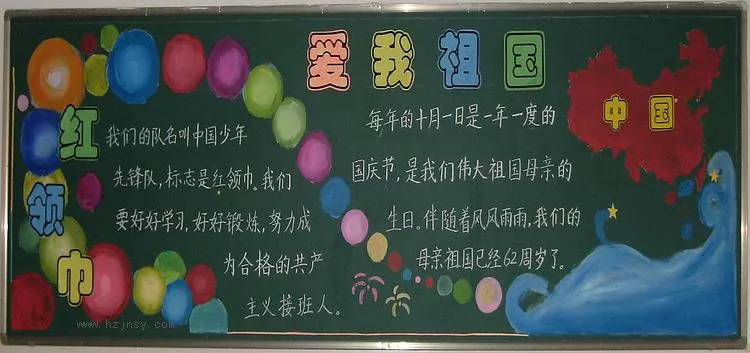 爱我祖国
红领巾
我们的队名叫中国少年
先锋队,标志是红领巾。我们
要好好学习,好好锻炼,努力成
为合格的共产
主义接班人。
每年的十月一日是一年一度的
国庆节,是我们伟大祖国母亲的
生日。伴随着风风雨雨,我们的
母亲祖国已经62周岁了。
中国
www.hzjnsy.com